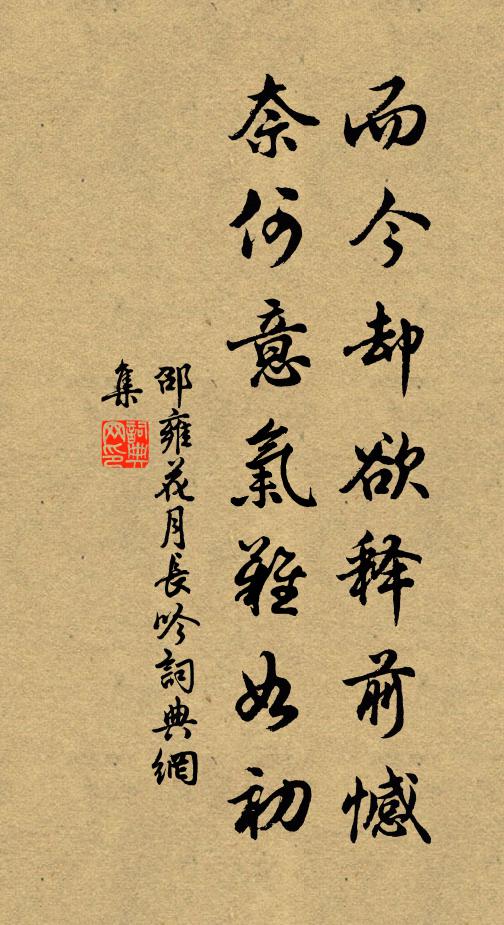 而今却欲释前憾
奈何意氣難如初
邵雍花月長吟詞典網
集
詞典
网印